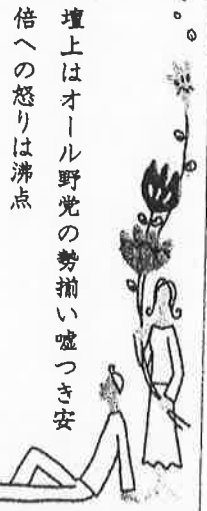 壇上はオール野党の勢揃い嘘つき安
倍への怒りは沸点